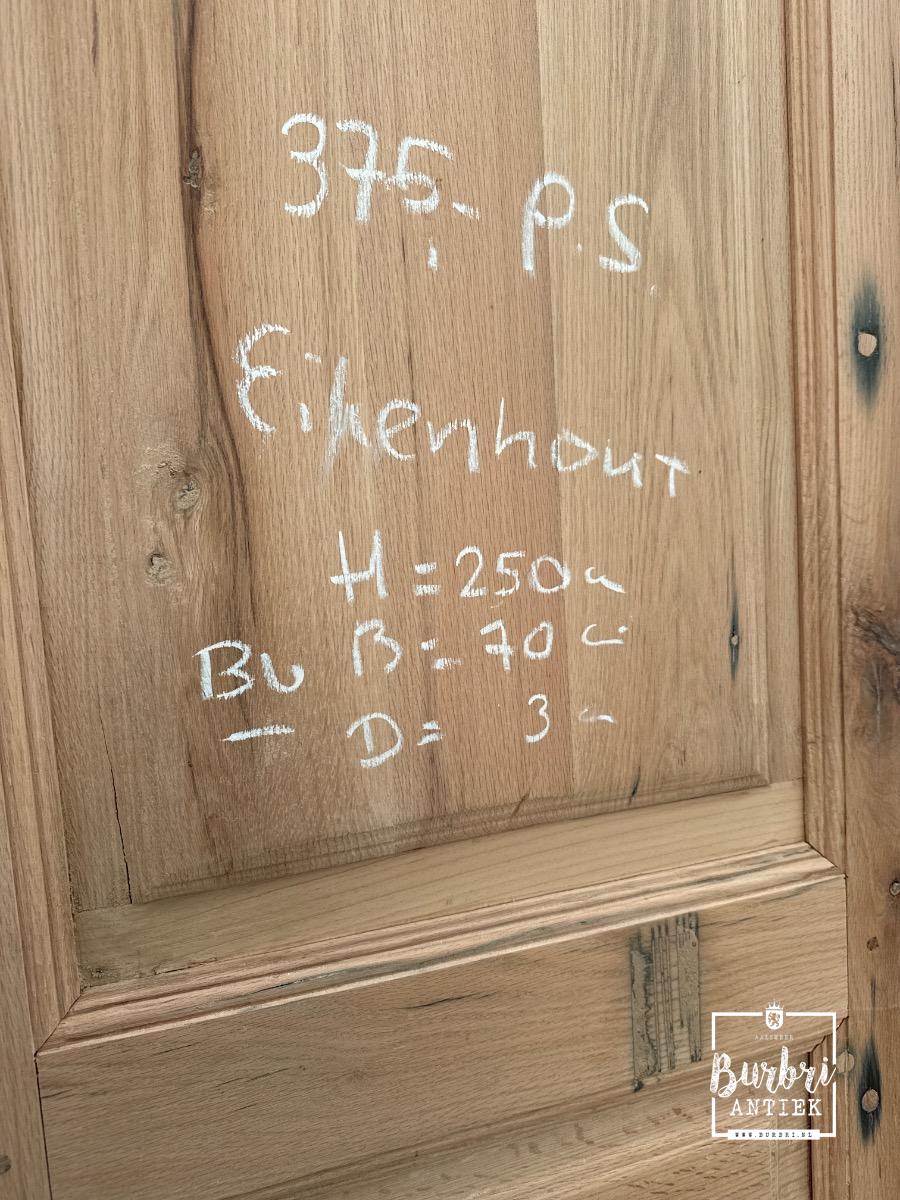 375,- P.S
Eikenhout
H = 250 cm
Bu B = 70 cm
D = 3 cm
AALSMEER
Burbri
ANTIEK
WWW.BURBRI.NL